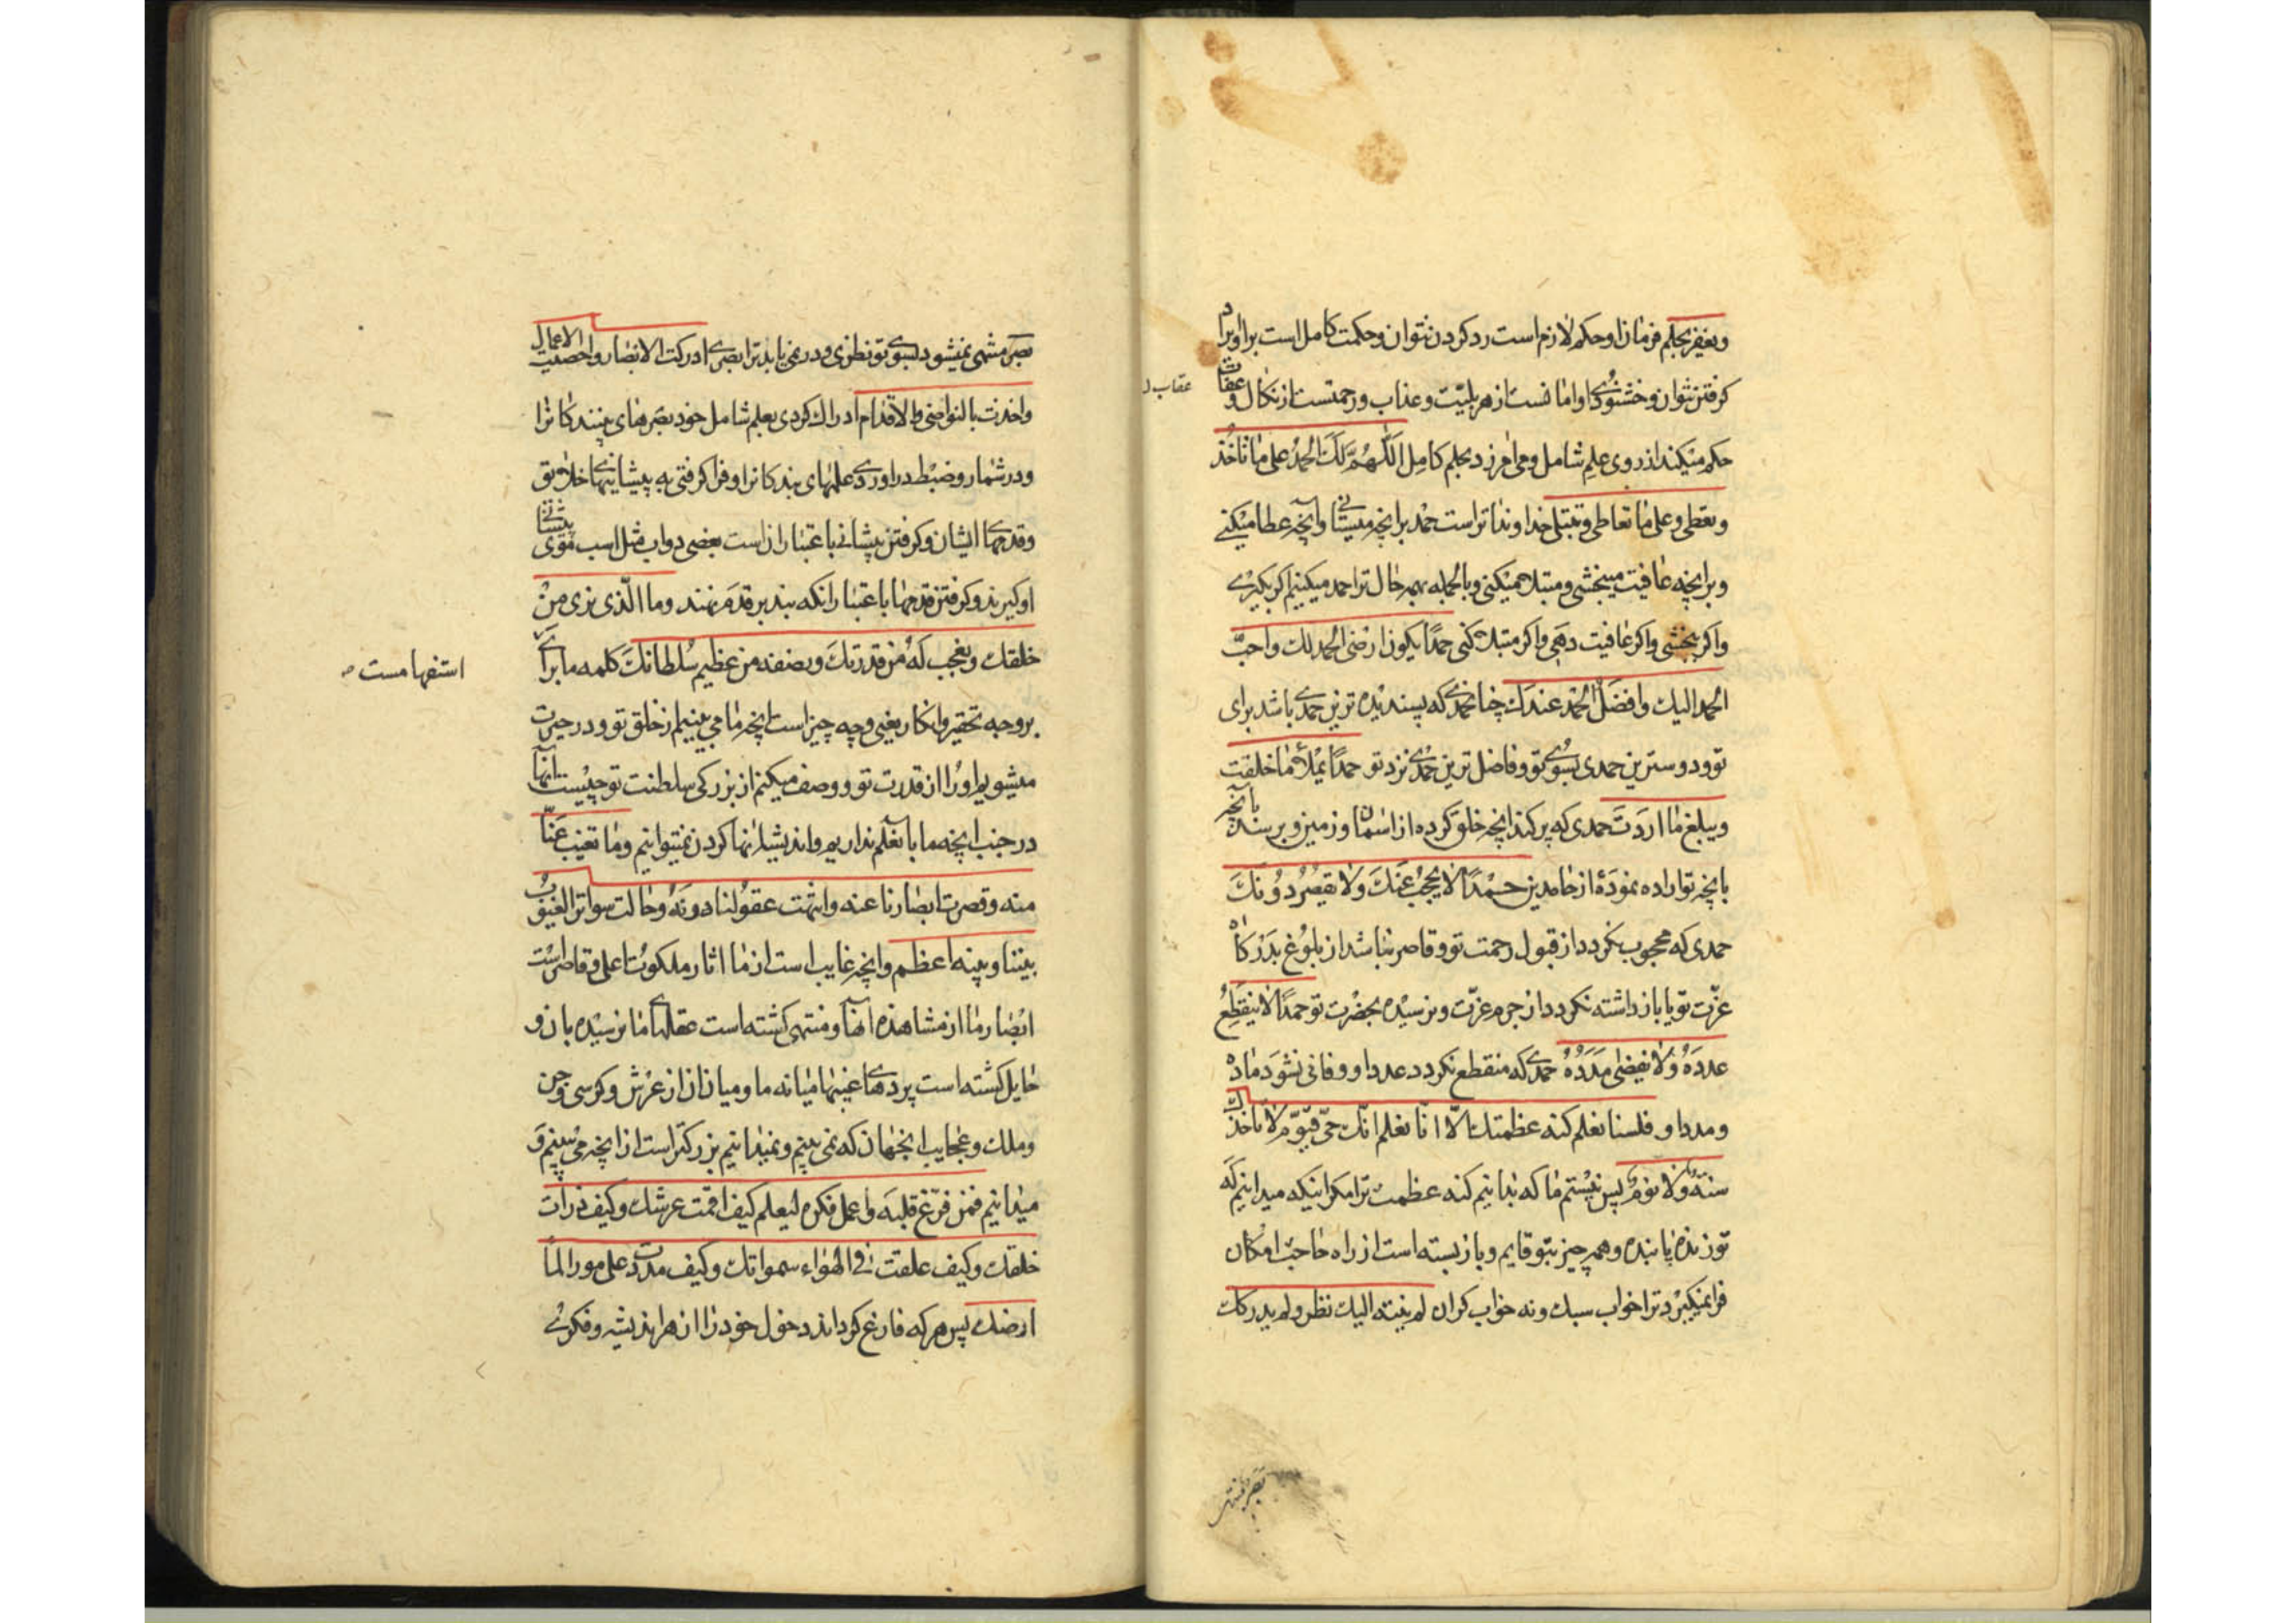 ويغفر بحلم فرمان او حكم لازم است رد كردن نتوان و حكمت كامل است بر او ايراد
كرفتن نتوان و خشنودى او امانست از هر بليّت و عذاب و رحمتست از نكال و عقاب
عقاب ل
حكم ميكند از روى علم شامل و مى امرزد بحلم كامل اللّهمّ لك الحمد على ما تأخذ
وتعطى وعلى ما تعافى وتبتلى خداوندا تراست حمد بر انچه ميستانى و آنچه عطا ميكنى
و بر انچه عافيت ميبخشى و مبتلا ميكنى و بالجمله بهر حال ترا حمد ميكنيم اكر بكيرى
و اكر ببخشى و اكر عافيت دهى و اكر مبتلا كنى حمدًا يكون ارضى الحمد لك واحبّ
الحمد اليك وافضل الحمد عندك چنان حمدى كه پسنديده ترين حمدى باشد براى
تو و دوستترين حمدى بسوى تو و فاضل ترين حمدى نزد تو حمدًا يملأ ما خلقت
ويبلغ ما اردت حمدى كه پر كند انچه خلق كرده از اسمان و زمين و برسد بآنچه
بانچه تو اراده نمودهٔ از حامدين حمدًا لا يحجب عنك ولا يقصر دونك
حمدى كه محجوب نكردد از قبول رحمت تو و قاصر نباشد از بلوغ بدركاه
عزّت تو يا باز داشته نكردد از حرم عزّت و نرسيده بحضرت تو حمدًا لا ينقطع
عدده ولا يفنى مدده حمدى كه منقطع نكردد عدد او و فانى نشود ماده
و مدد او فلسنا نعلم كنه عظمتك الّا انّا نعلم انّك حىّ قيّوم لا تأخذك
سنة ولا نوم پس نيستم ما كه بدانيم كنه عظمت ترا مكر اينكه ميدانيم كه
تو زنده پاينده و همه چيز بتو قايم و باز بسته است از راه حاجت امكان
فرا نميكيرد ترا خواب سبك و نه خواب كران لم ينته اليك نظر ولم يدركك
بصر منتهى
بصر منتهى نميشود بسوى تو نظرى و در نمى يابد ترا بصرى ادركت الابصار واحصيت الاعمال
واخذت بالنواصى والاقدام ادراك كردى بعلم شامل خود بصرهاى بينندكانرا
و در شمار و ضبط در اوردى عملهاى بندكانرا و فرا كرفتى به پيشانيها خلايق
و قدمها ايشان و كرفتن پيشانى باعتبار ان است بعضى دواب مثل اسب موى پيشانى
او كيرند و كرفتن قدمها باعتبار انكه بند بر قدم نهند وما الّذى نرى من
خلقك ونعجب له من قدرتك ونصفه من عظيم سلطانك كلمه ما براى
استفهامست
بر وجه تحقير و انكار يعنى و چه چيز است انچه ما مى بينيم از خلق تو و در حيرت
ميشويم او را از قدرت تو و وصف ميكنم از بزركى سلطنت تو چيست آنها
در جنب انچه ما بآن علم نداريم و انديشيدنها كردن نميتوانيم وما تغيب عنّا
منه وقصرت ابصارنا عنه وانتهت عقولنا دونه وحالت سواتر الغيوب
بيننا وبينه اعظم و انچه غايب است از ما اثار ملكوت اعلى و قاصر است
ابصار ما از مشاهده آنها و منتهى كشته است عقلها ما نرسيده بان و
حايل كشته است پردهاى غيبها ميانه ما و ميان ان از عرش و كرسى و جن
و ملك و عجايب انجهان كه نمى بينم و نميدانيم بزركتر است از انچه مى بينم و
ميدانيم فمن فرّغ قلبه واعمل فكره ليعلم كيف اقمت عرشك وكيف ذرأت
خلقك وكيف علقت فى الهواء سمواتك وكيف مددت على مور الماء
ارضك پس هر كه فارغ كرداند دخول خود را از هر انديشه و فكرى